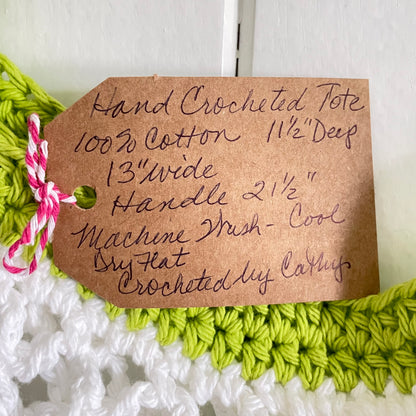 Hand Crocheted Tote
100% Cotton 11½" Deep
13" Wide
Handle 21½"
Machine Wash - Cool
Dry Flat
Crocheted by Cathy